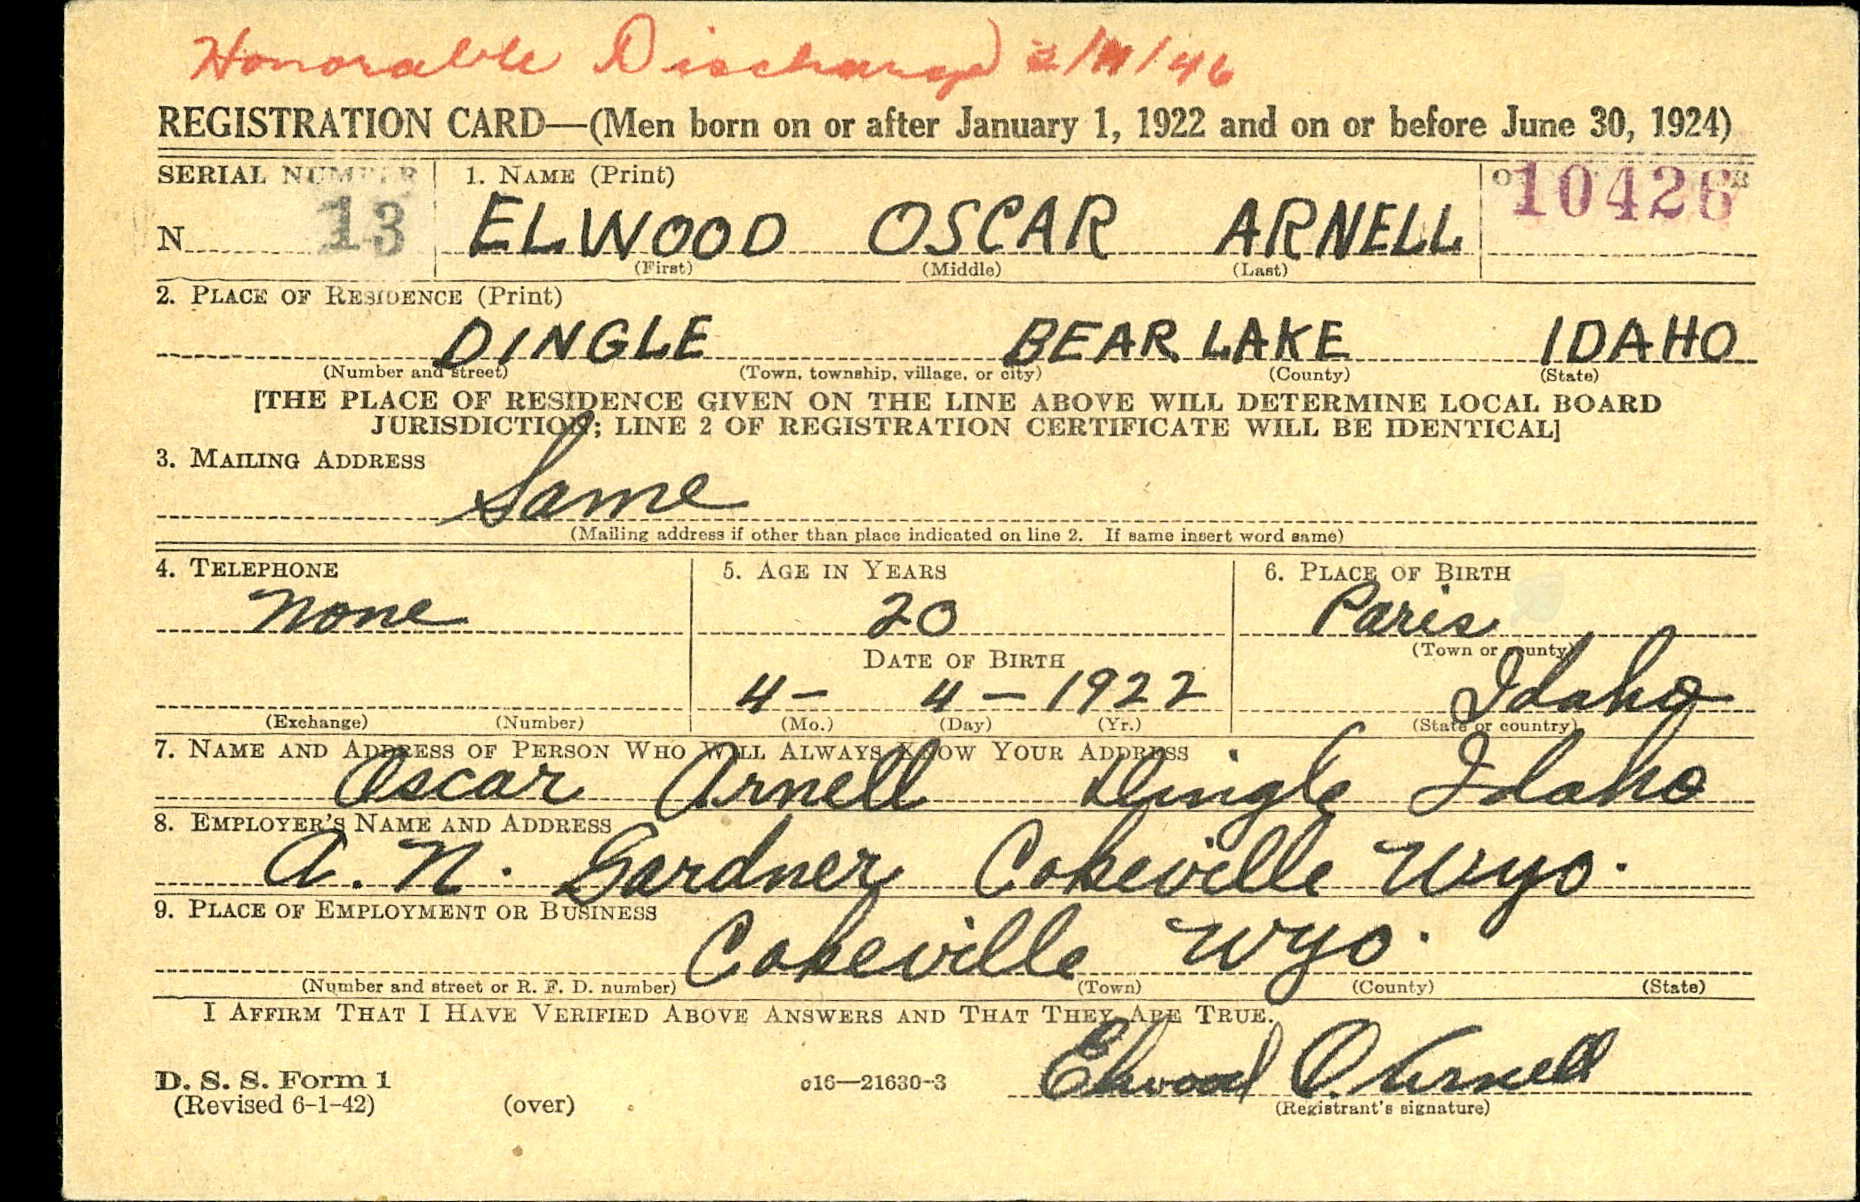 Honorable Discharge 2/11/46
REGISTRATION CARD—(Men born on or after January 1, 1922 and on or before June 30, 1924)
SERIAL NUMBER
1. NAME (Print)
10426
N 13
ELWOOD OSCAR ARNELL
(First) (Middle) (Last)
2. PLACE OF RESIDENCE (Print)
DINGLE BEAR LAKE IDAHO
(Number and street) (Town, township, village, or city) (County) (State)
[THE PLACE OF RESIDENCE GIVEN ON THE LINE ABOVE WILL DETERMINE LOCAL BOARD
JURISDICTION; LINE 2 OF REGISTRATION CERTIFICATE WILL BE IDENTICAL]
3. MAILING ADDRESS
Same
(Mailing address if other than place indicated on line 2. If same insert word same)
4. TELEPHONE
None
(Exchange) (Number)
5. AGE IN YEARS
20
DATE OF BIRTH
4- 4-1922
(Mo.) (Day) (Yr.)
6. PLACE OF BIRTH
Paris
(Town or county)
Idaho
(State or country)
7. NAME AND ADDRESS OF PERSON WHO WILL ALWAYS KNOW YOUR ADDRESS
Oscar Arnell Dingle Idaho
8. EMPLOYER'S NAME AND ADDRESS
A. N. Gardner Cokeville Wyo.
9. PLACE OF EMPLOYMENT OR BUSINESS
Cokeville Wyo.
(Number and street or R. F. D. number) (Town) (County) (State)
I AFFIRM THAT I HAVE VERIFIED ABOVE ANSWERS AND THAT THEY ARE TRUE.
Elwood O. Arnell
D. S. S. Form 1
(Revised 6-1-42) (over) c16—21630-3 (Registrant's signature)